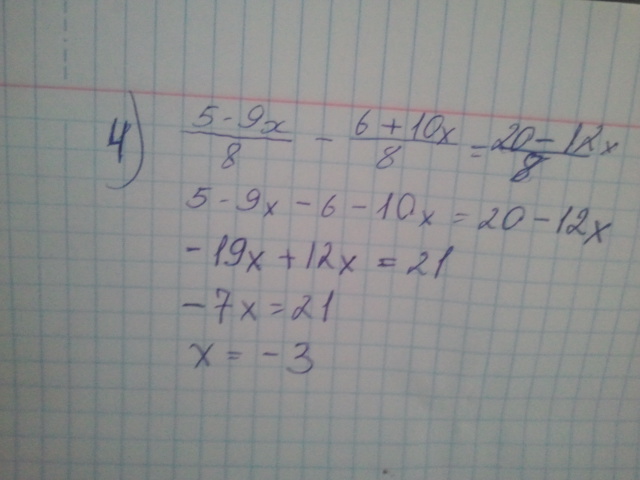 4) (5-9x)/8 - (6+10x)/8 = (20-12x)/8
5-9x-6-10x=20-12x
-19x+12x=21
-7x=21
x=-3